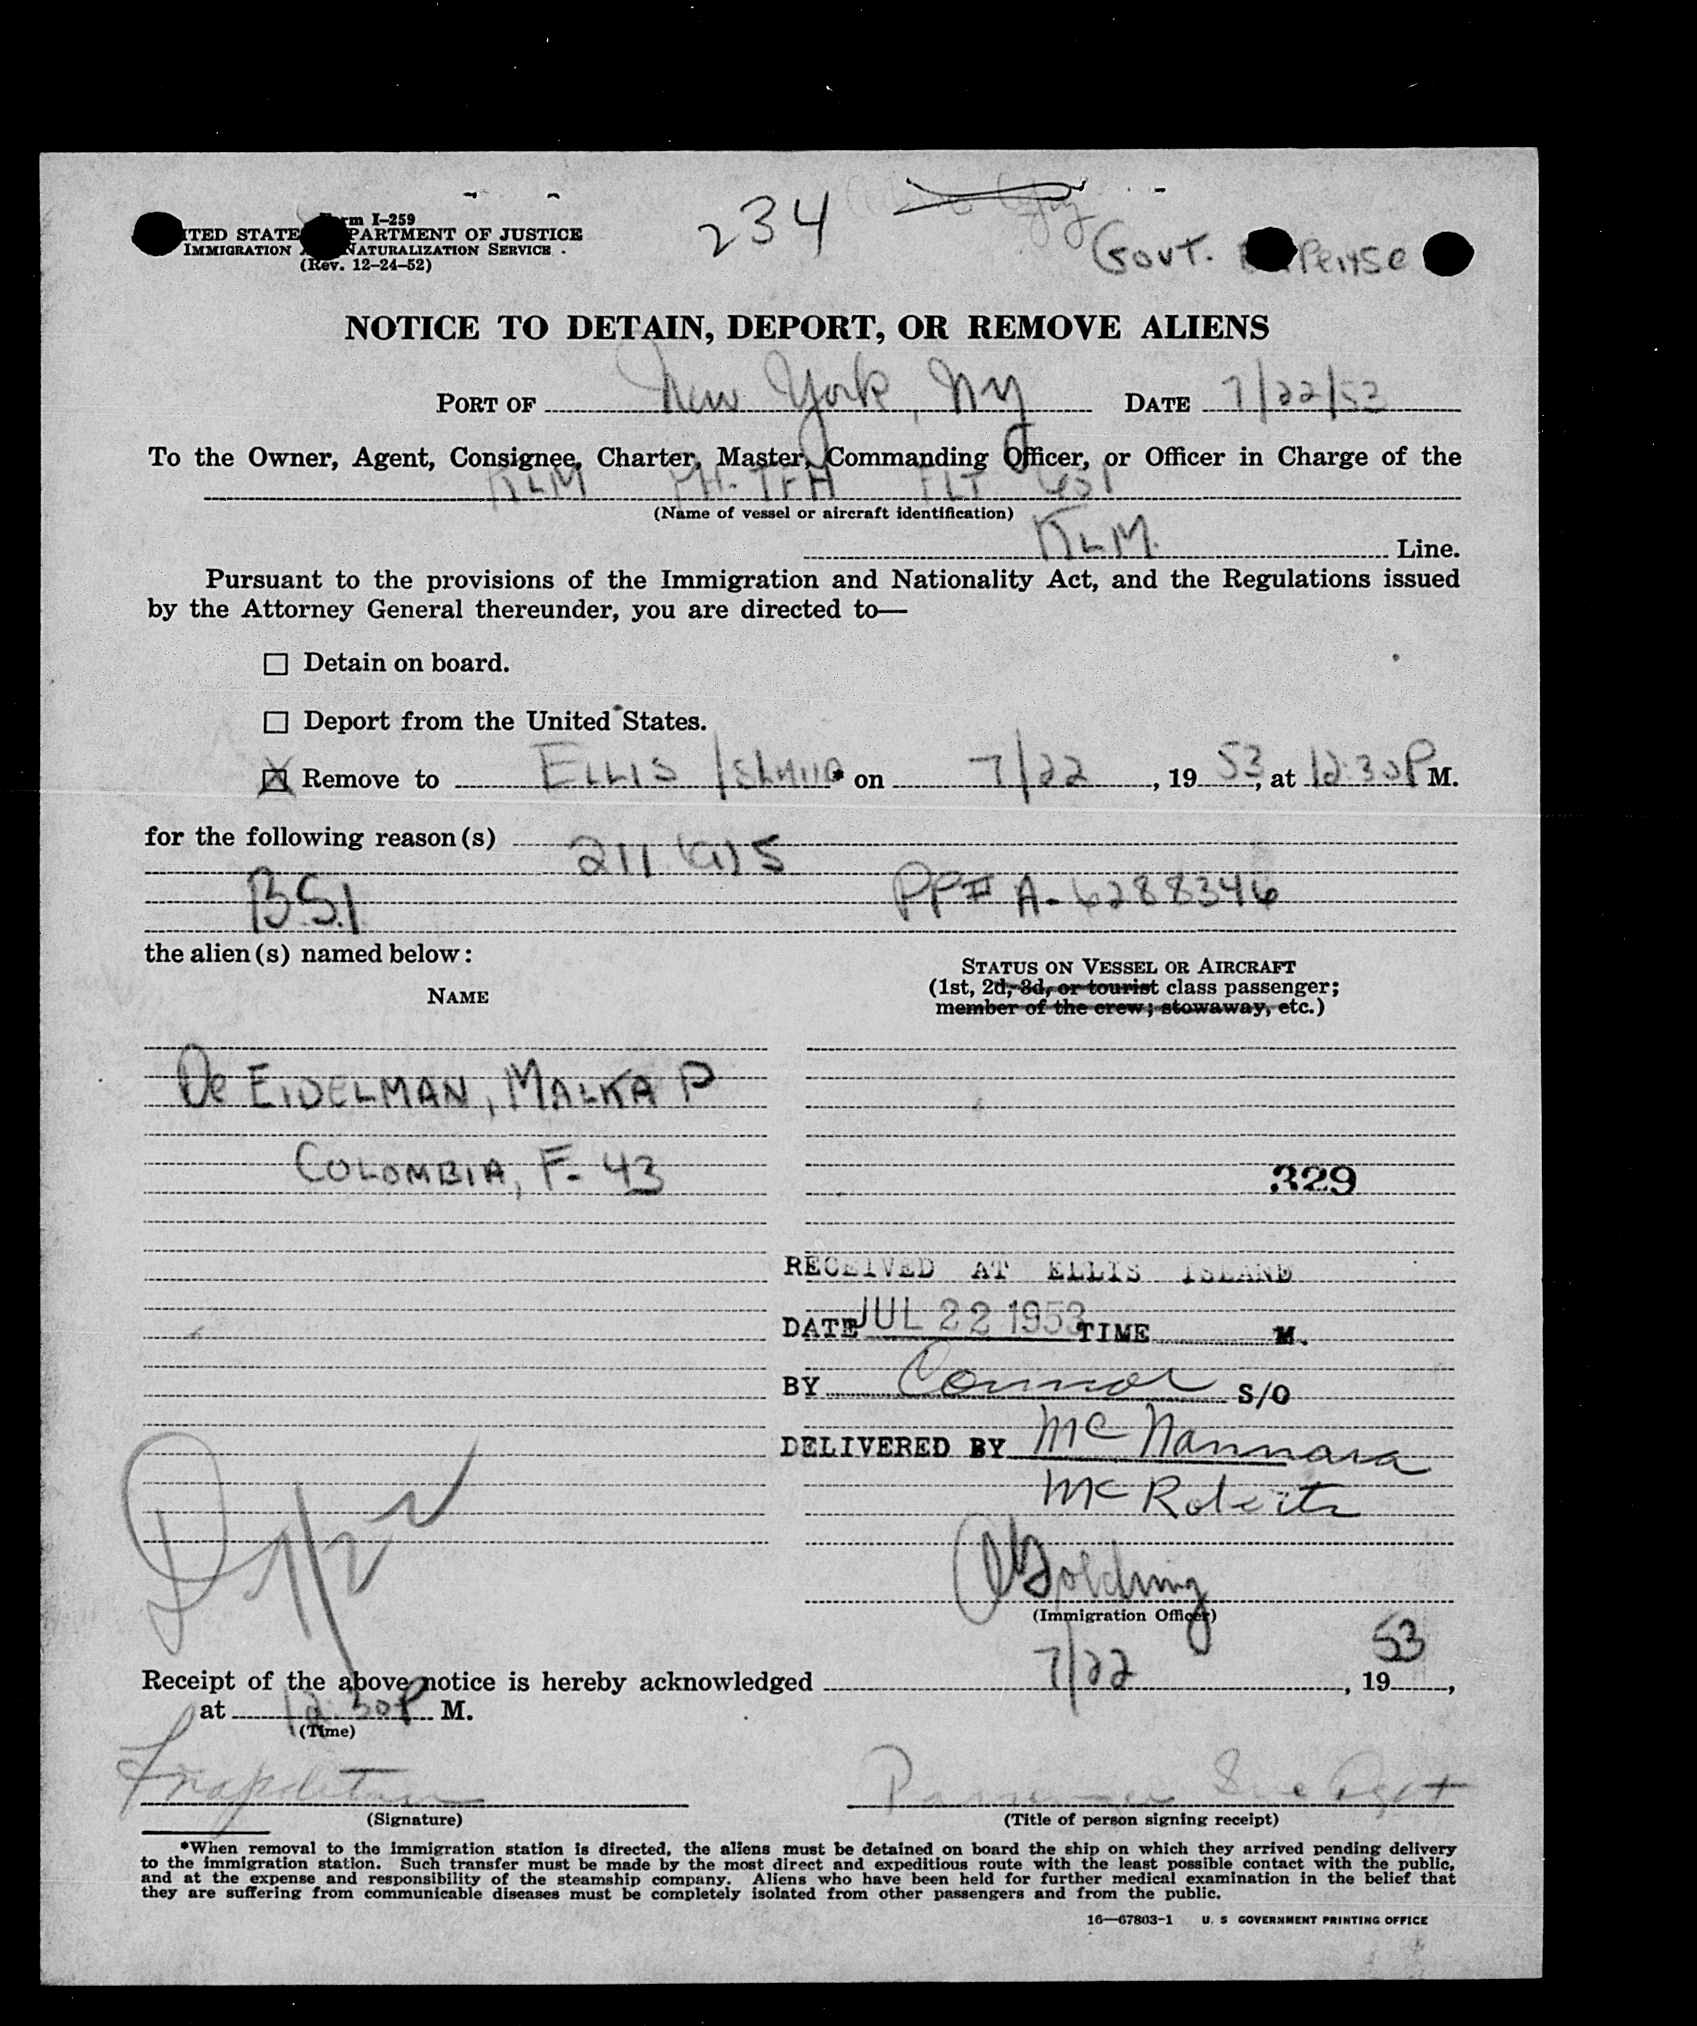 234
Form I-259
UNITED STATES DEPARTMENT OF JUSTICE
IMMIGRATION AND NATURALIZATION SERVICE
(Rev. 12-24-52)
Govt. Expense
NOTICE TO DETAIN, DEPORT, OR REMOVE ALIENS
PORT OF New York, NY DATE 7/22/53
To the Owner, Agent, Consignee, Charter, Master, Commanding Officer, or Officer in Charge of the
KLM PH-TFH FLT 601
(Name of vessel or aircraft identification)
KLM. Line.
Pursuant to the provisions of the Immigration and Nationality Act, and the Regulations issued
by the Attorney General thereunder, you are directed to—
☐ Detain on board.
☐ Deport from the United States.
☒ Remove to ELLIS ISLAND* on 7/22, 19 53, at 12:30P M.
for the following reason(s) 211 (a) 5
BSI PP# A-6288346
the alien(s) named below:
NAME
STATUS ON VESSEL OR AIRCRAFT
(1st, 2d, 3d, or tourist class passenger;
member of the crew; stowaway, etc.)
De EIDELMAN, MALKA P
COLOMBIA, F- 43
329
RECEIVED AT ELLIS ISLAND
DATE JUL 22 1953 TIME M.
BY Connor S/O
DELIVERED BY McNamara
McRoberts
Golding
(Immigration Officer)
Receipt of the above notice is hereby acknowledged 7/22, 19 53,
at 12:30P M.
(Time)
Passenger Svc Agt
(Signature)
(Title of person signing receipt)
*When removal to the immigration station is directed, the aliens must be detained on board the ship on which they arrived pending delivery
to the immigration station. Such transfer must be made by the most direct and expeditious route with the least possible contact with the public,
and at the expense and responsibility of the steamship company. Aliens who have been held for further medical examination in the belief that
they are suffering from communicable diseases must be completely isolated from other passengers and from the public.
16—67803-1 U. S GOVERNMENT PRINTING OFFICE